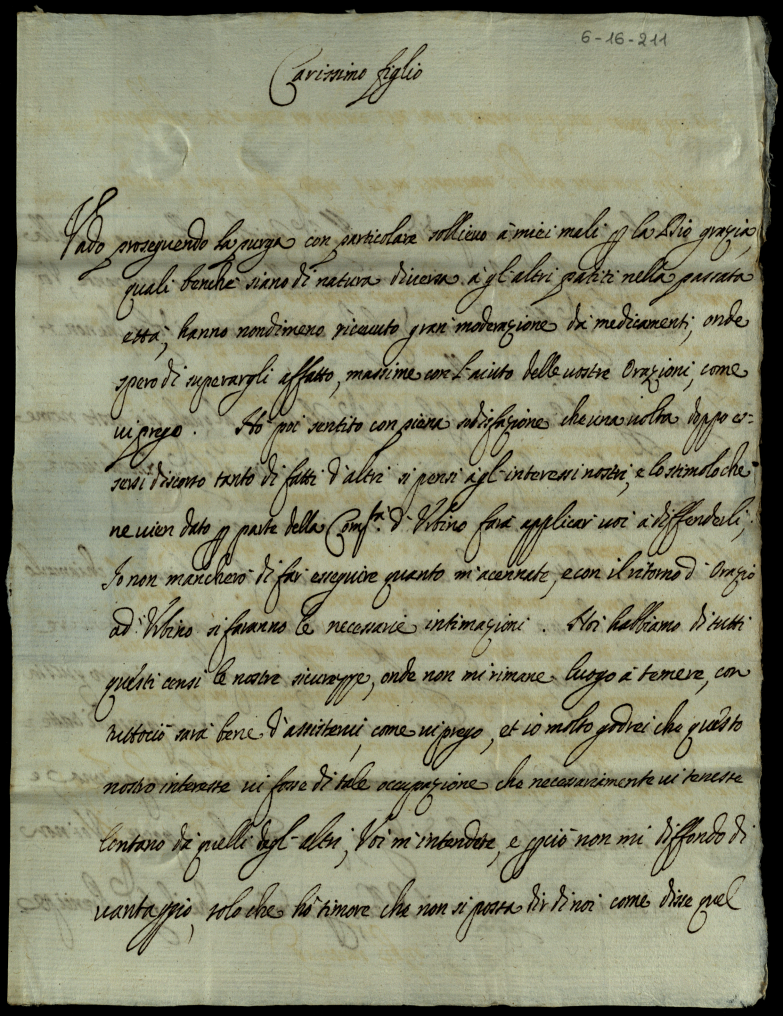 6-16-211
Carissimo figlio
Vado proseguendo la purga con particolare sollievo à miei mali p la Dio grazia,
quali benche siano di natura diversa à gl'altri patiti nella passata
età, hanno nondimeno riceuuto gran moderazione da medicamenti, onde
spero di superargli affatto, massime con l'aiuto delle uostre Orazioni, come
ui prego. Hò poi sentito con piena sodisfazione che una uolta doppo es=
sersi discorso tanto di fatti d'altri si pensi à gl'interessi nostri, e lo stimolo che
ne uien dato p parte della Comp.a d'Vrbino farà applicar uoi à diffenderli;
Io non mancherò di far esseguire quanto m'acennate, e con il ritorno d'Orazio
ad Vrbino si faranno le necessarie intimazioni. Noi habbiamo di tutti
questi censi le nostre sicurezze, onde non mi rimane luogo à temere, con
tuttociò sarà bene d'assistervi, come ui prego, et io molto godrei che questo
nostro interesse ui fosse di tale occupazione che necessariamente ui tenesse
lontano da quelli degl'altri, Voi m'intendete, e pciò non mi diffondo di
vantaggio, solo che hò timore che non si possa dir di noi come disse quel